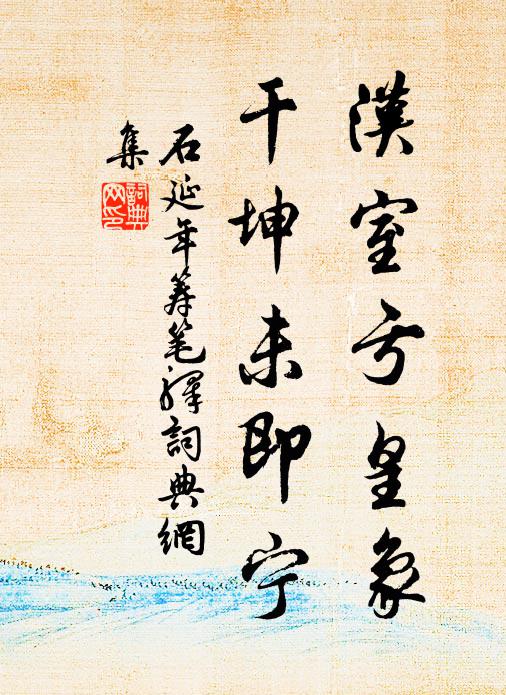 漢室亏皇象
干坤未即宁
石延年筹笔驿詞典網
集
詞典網印